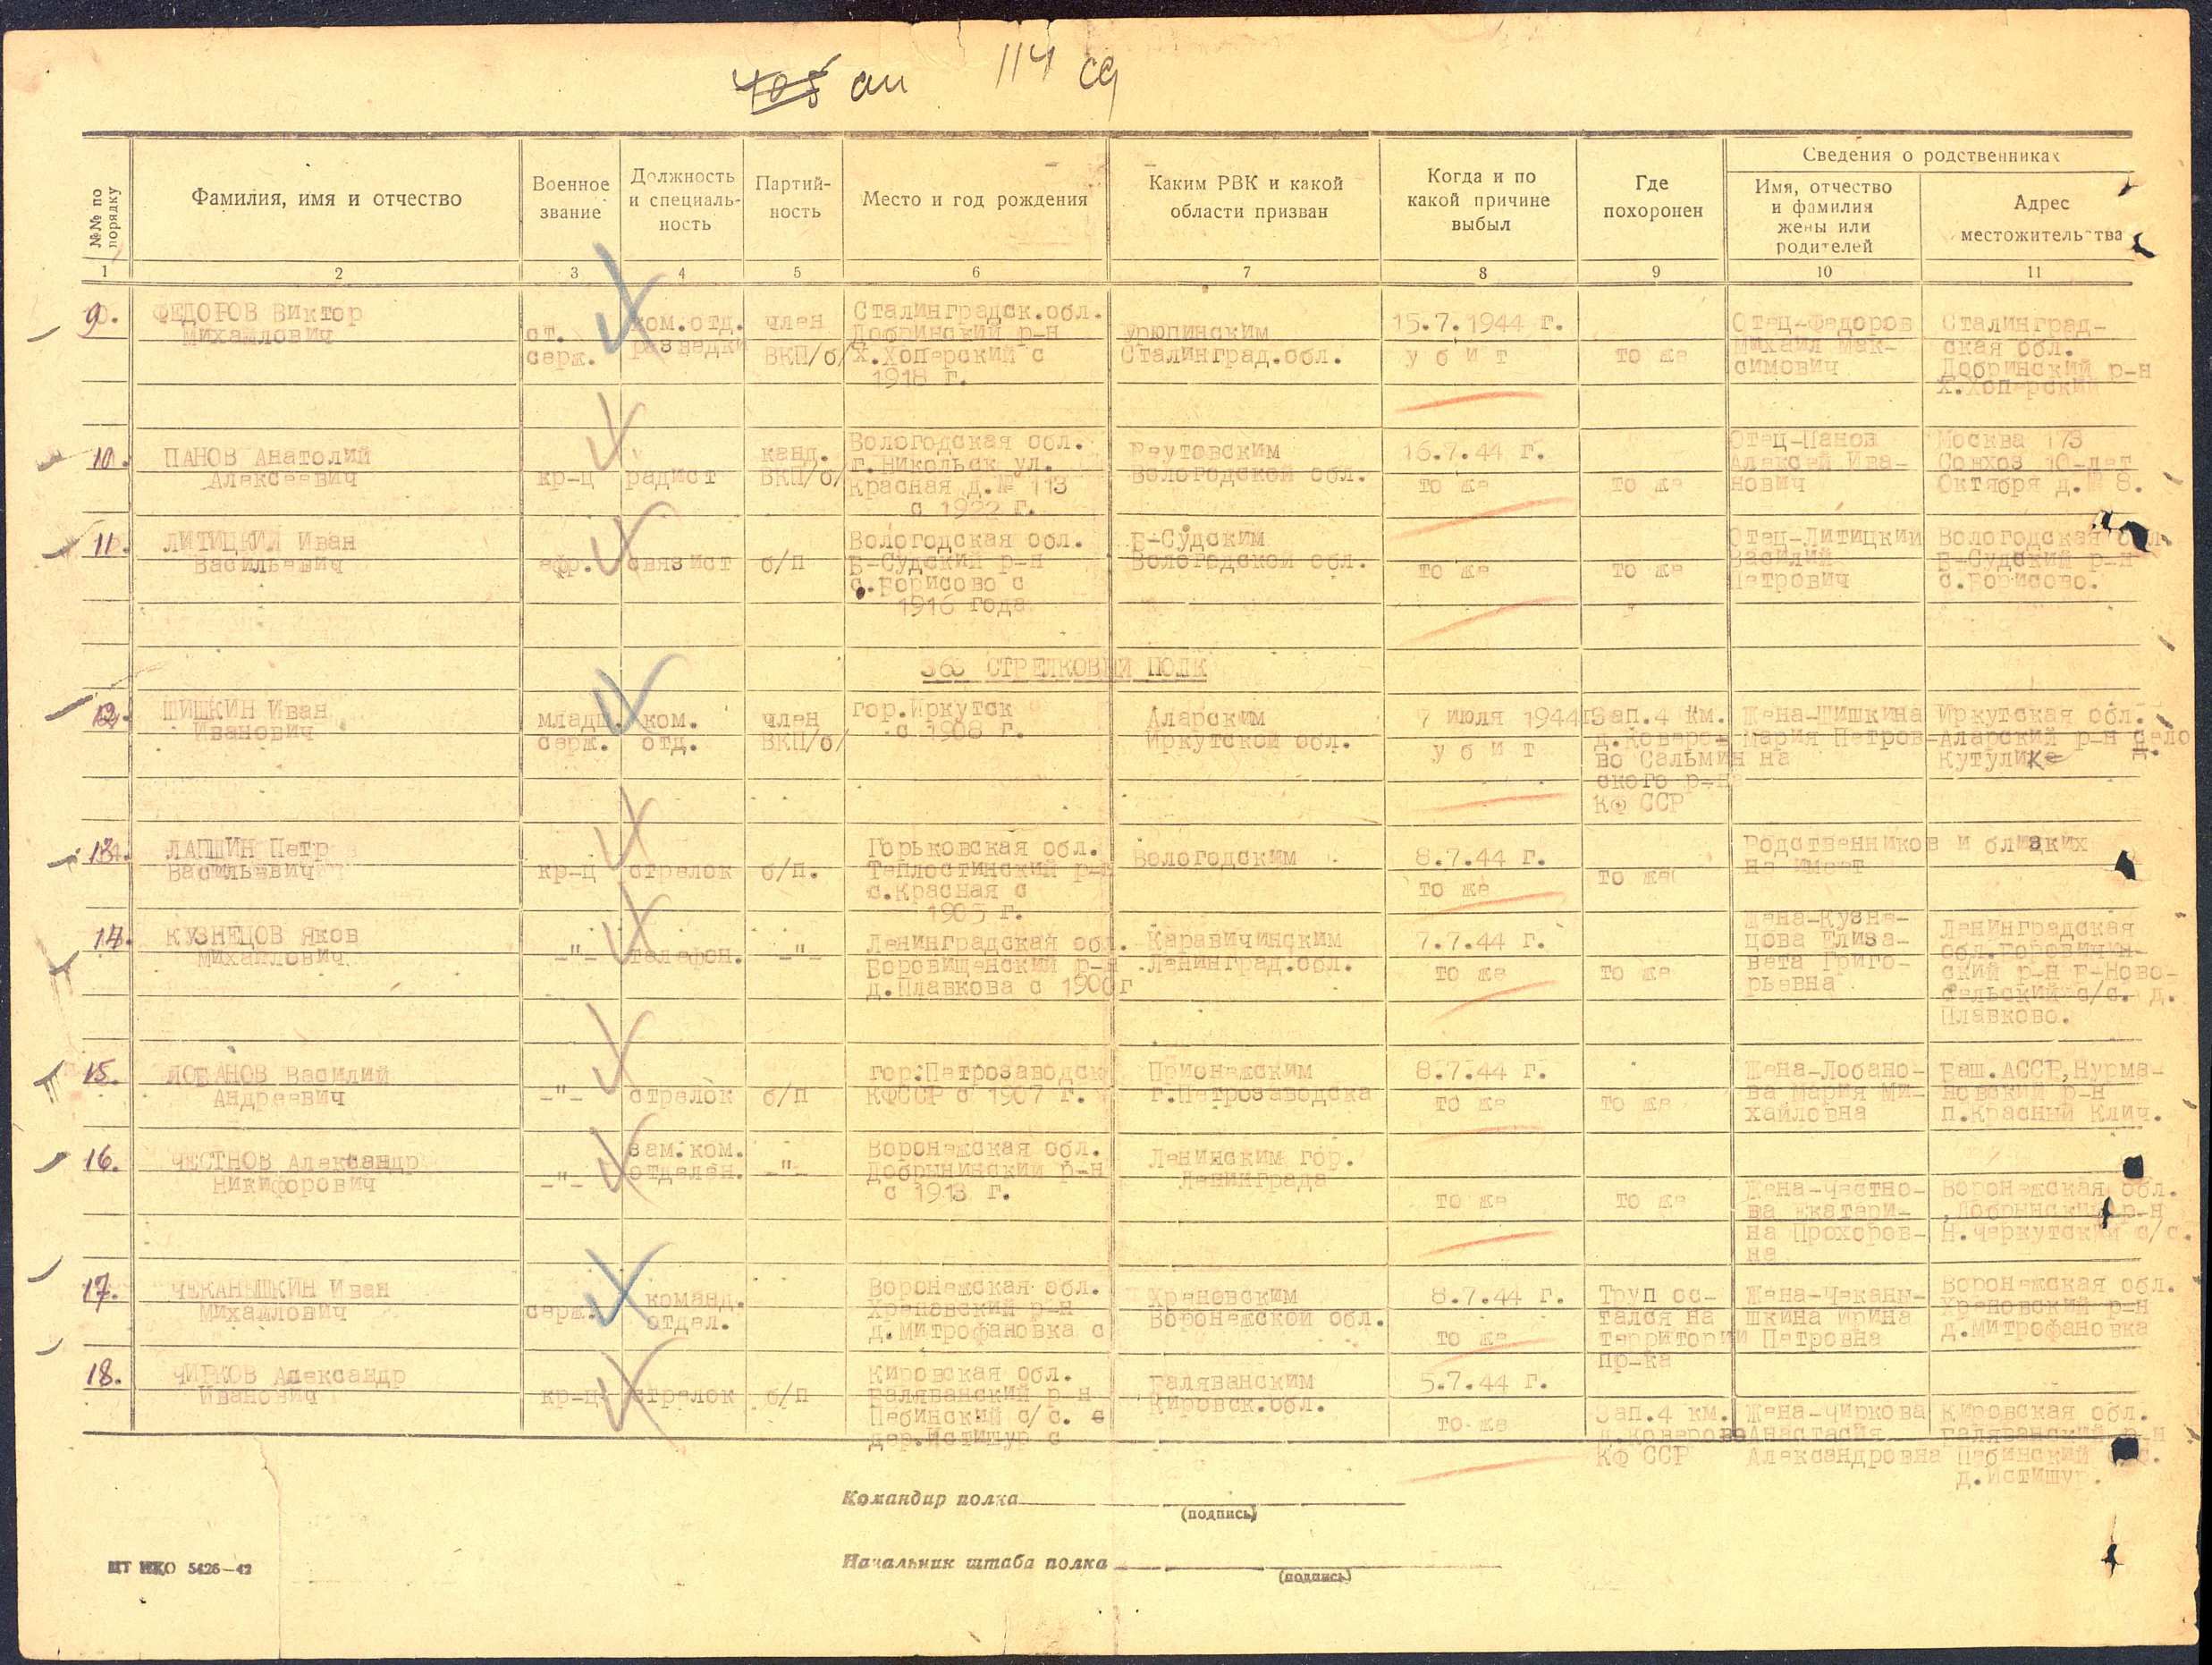 405 ап 114 сд
№№ по порядку
Фамилия, имя и отчество
Военное звание
Должность и специаль-ность
Партий-ность
Место и год рождения
Каким РВК и какой области призван
Когда и по какой причине выбыл
Где похоронен
Сведения о родственниках
Имя, отчество и фамилия жены или родителей
Адрес местожительства
1 2 3 4 5 6 7 8 9 10 11
9.
ФЕДОРОВ Виктор
Михайлович
ст.
серж.
ком.отд.
разведки
член
ВКП/б/
Сталинградск.обл.
Добринский р-н
х.Хоперский с
1918 г.
Урюпинским
Сталинград.обл.
15.7.1944 г.
у б и т
то же
Отец-Федоров
Михаил Мак-
симович
Сталинград-
ская обл.
Добринский р-н
х.Хоперский
10.
ПАНОВ Анатолий
Алексеевич
кр-ц
радист
канд.
ВКП/б/
Вологодская обл.
г.Никольск ул.
Красная д.№ 113
с 1922 г.
Реутовским
Вологодской обл.
16.7.44 г.
то же
то же
Отец-Панов
Алексей Ива-
нович
Москва 173
Совхоз 10-лет
Октября д.№ 8.
11.
ЛИТИЦКИЙ Иван
Васильевич
ефр.
связист
б/п
Вологодская обл.
Б-Судский р-н
с.Борисово с
1916 года
Б-Судским
Вологодской обл.
то же
то же
Отец-Литицкий
Василий
Петрович
Вологодская обл.
Б-Судский р-н
с.Борисово.
363 СТРЕЛКОВЫЙ ПОЛК
12.
ШИШКИН Иван
Иванович
младш.
серж.
ком.
отд.
член
ВКП/б/
гор.Иркутск
с 1908 г.
Аларским
Иркутской обл.
7 июля 1944г
у б и т
Зап.4 км.
д.Коверо-
во Сальмин
ского р-на
КФ ССР
Жена-Шишкина
Мария Петров-
на
Иркутская обл.
Аларский р-н село
Кутулик
13.
ЛАПШИН Петр
Васильевич
кр-ц
стрелок
б/п.
Горьковская обл.
Теплостинский р-н
с.Красная с
1905 г.
Вологодским
8.7.44 г.
то же
то же
Родственников и близких
не имеет
14.
КУЗНЕЦОВ Яков
Михайлович
-"-
телефон.
-"-
Ленинградская обл.
Боровищенский р-н
д.Плавкова с 1900г
Каравичинским
Ленинград.обл.
7.7.44 г.
то же
то же
Жена-Кузне-
цова Елиза-
вета Григо-
рьевна
Ленинградская
обл.Боровичин-
ский р-н Е-Ново-
сельский с/с. д.
Плавково.
15.
ЛОБАНОВ Василий
Андреевич
-"-
стрелок
б/п
гор.Петрозаводск
КФССР с 1907 г.
Прионежским
г.Петрозаводска
8.7.44 г.
то же
то же
Жена-Лобано-
ва Мария Ми-
хайловна
Баш.АССР,Нурма-
новский р-н
п.Красный Клич.
16.
ЧЕСТНОВ Александр
Никифорович
-"-
зам.ком.
отделен.
-"-
Воронежская обл.
Добрынинский р-н
с 1913 г.
Ленинским гор.
Ленинграда
то же
то же
Жена-Честно-
ва Екатери-
на Прохоров-
на
Воронежская обл.
Добрынский р-н
Н.Черкутский с/с.
17.
ЧЕКАНЫШКИН Иван
Михайлович
серж.
команд.
отдел.
Воронежская обл.
Хреновский р-н
д.Митрофановка с
Хреновским
Воронежской обл.
8.7.44 г.
то же
Труп ос-
тался на
территории
пр-ка
Жена-Чеканы-
шкина Ирина
Петровна
Воронежская обл.
Хреновский р-н
д.Митрофановка
18.
ЧИРКОВ Александр
Иванович
кр-ц
стрелок
б/п
Кировская обл.
Баляванский р-н
Пабинский с/с. с
дер.Истишур с
Баляванским
Кировск.обл.
5.7.44 г.
то же
Зап.4 км.
д.Коверово
КФ ССР
Жена-Чиркова
Анастасия
Александровна
Кировская обл.
Баляванский р-н
Пабинский с/с.
д.Истишур.
Командир полка
(подпись)
Начальник штаба полка
(подпись)
ШТ НКО 5426—42